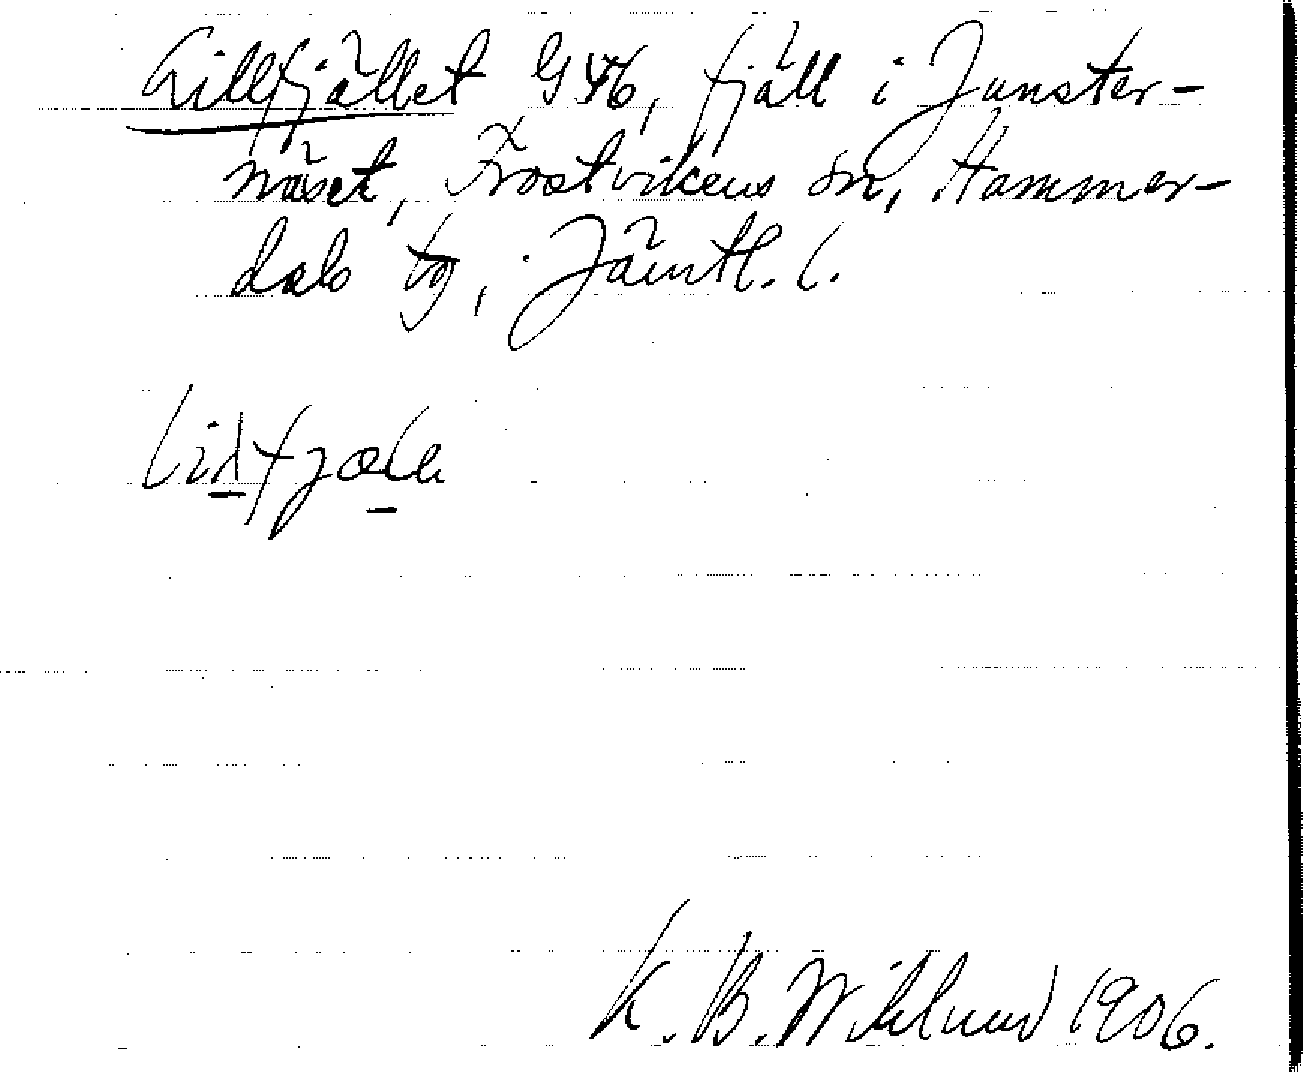 Lillfjället G 46, fjäll i Junster-
näset, Frostvikens sn, Hammer-
dals tg, Jämtl. l.
K. B. Wiklund 1906.